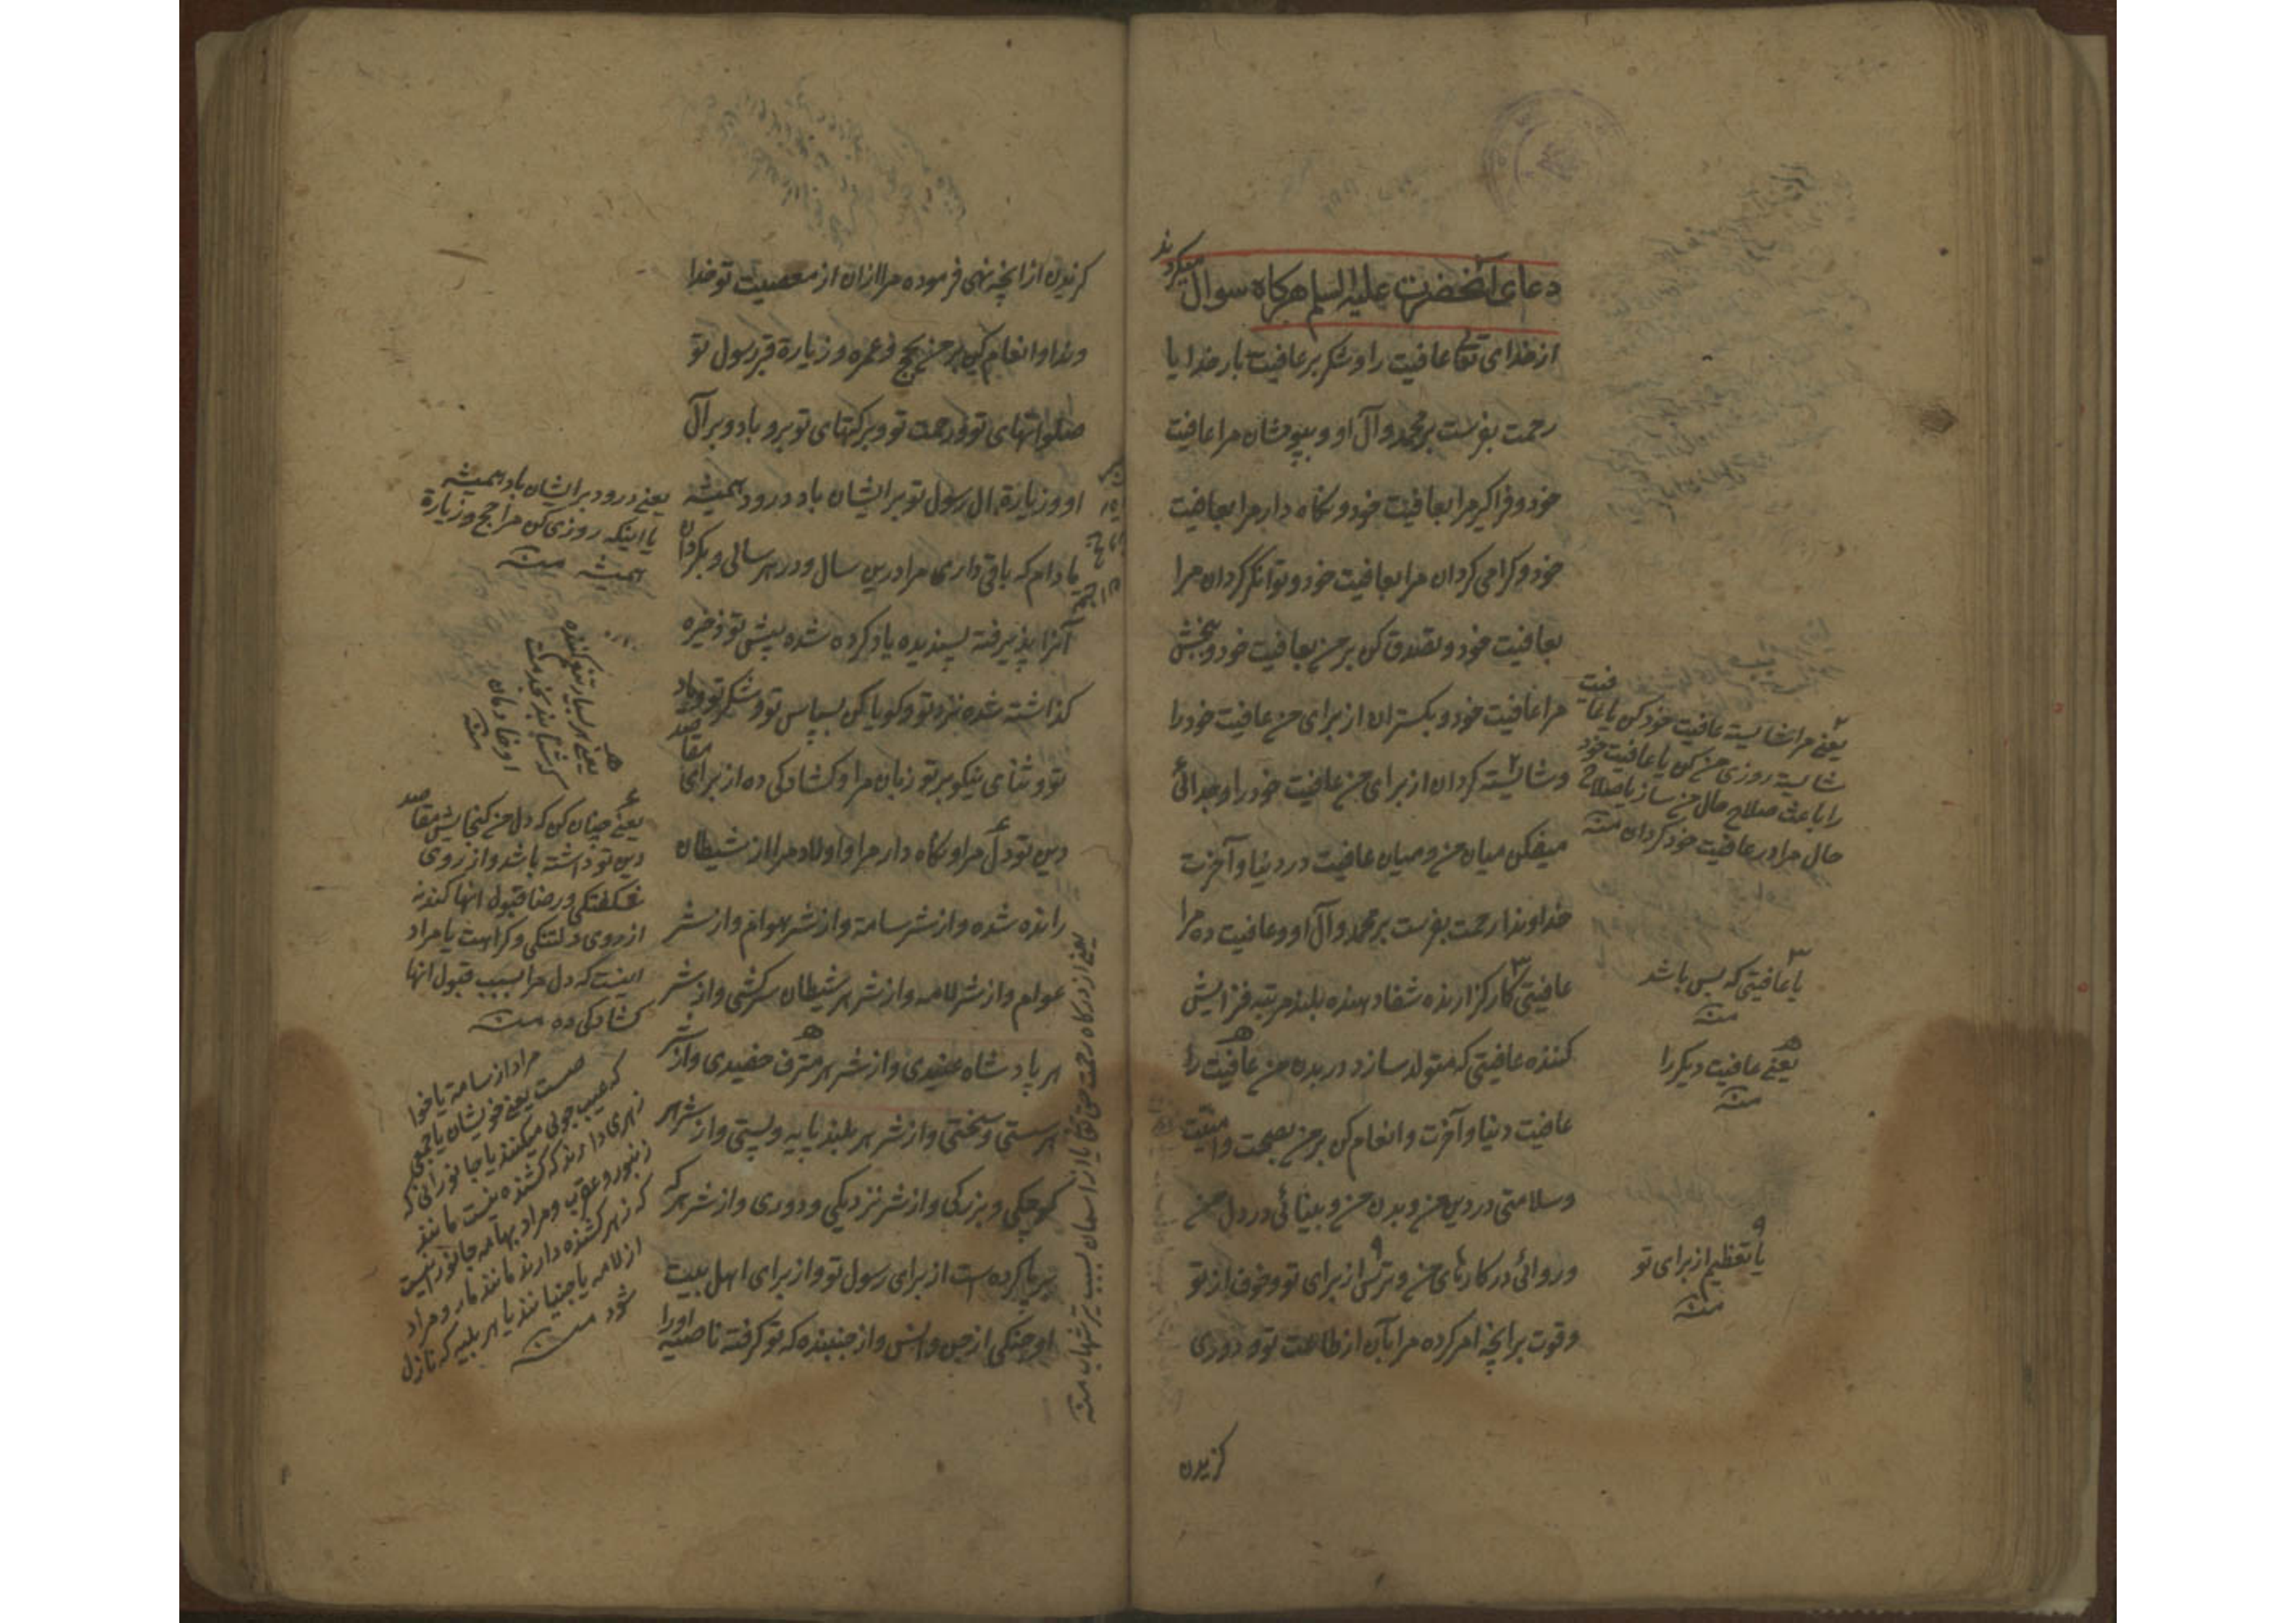 دعای آنحضرت علیه السلم هرکاه سوال میکردند
از خدای تعالی عافیت را و شکر بر عافیت بار خدایا
رحمت بفرست بر محمد و آل او و بپوشان مرا عافیت
خود و فراگیر مرا بعافیت خود و نکاه دار مرا بعافیت
خود و کرامی کردان مرا بعافیت خود و توانکر کردان مرا
بعافیت خود و تصدق کن بر من بعافیت خود و ببخش
مرا عافیت خود و بکستران از برای من عافیت خود را
و شایسته کردان از برای من عافیت خود را و جدائی
میفکن میان من و میان عافیت در دنیا و آخرت
خداوندا رحمت بفرست بر محمد و آل او و عافیت ده مرا
عافیتی کارکزارنده شفا دهنده بلند مرتبه فزایش
کننده عافیتی که متولد سازد در بدن من عافیت را
عافیت دنیا و آخرت و انعام کن بر من بصحت و امنیت
و سلامتی در دین من و بدن من و بینائی در دل من
و روائی در کارهای من و ترس از برای تو و خوف از تو
و قوت بر آنچه امر کرده مرا بآن از طاعت تو و دوری
کزیدن
یعنی مرا شایسته عافیت خود کن یا عافیت
شایسته روزی من کن یا عافیت خود
را باعث صلاح حال من ساز یا صلاح
حال مرا در عافیت خود کردان منه
یا عافیتی که بس باشد
منه
یعنی عافیت دیکر را
منه
یا تعظیم از برای تو
منه
کزیدن از آنچه نهی فرموده مرا ازان از معصیت تو خدا
وندا و انعام کن بر من بحج و عمره و زیارة قبر رسول تو
صلواتهای تو و رحمت تو و برکتهای تو برو باد و بر آل
او و زیارة آل رسول تو بر ایشان باد درود همیشه
مادام که باقی داری مرا درین سال و در هر سالی و بکردان
آنرا پذیرفته پسندیده یاد کرده شده پیش تو ذخیره
کذاشته شده نزد تو و کویا کن بسپاس تو و شکر تو و یاد
تو و ثنای نیکو بر تو زبان مرا و کشادکی ده از برای مقاصد
دین تو دل مرا و نکاه دار مرا و اولاد مرا از شیطان
رانده شده و از شر سامة و از شر هوام و از شر
عوام و از شر لامه و از شر هر شیطان سرکشی و از شر
هر پادشاه عنیدی و از شر هر مترف حفیدی و از شر
هر سستی و سختی و از شر هر بلند پایه و پستی و از شر هر
کوچکی و بزرکی و از شر نزدیکی و دوری و از شر هر که
برپا کرده است از برای رسول تو و از برای اهل بیت
او جنکی از جن و انس و از جنبنده که تو کرفته ناصیه اورا
یعنی درود بر ایشان باد همیشه
یا اینکه روزی کن مرا حج و زیارة
همیشه منه
یعنی هر بسیار تنعم کننده
که شتابند بخدمت
او خادمان
منه
یعنی چنان کن که دل من کنجایش مقاصد
دین تو داشته باشد و از روی
شکفتکی و رضا قبول آنها کند نه
از روی دلتنکی و کراهت یا مراد
اینست که دل مرا بسبب قبول آنها
کشادکی ده منه
مراد از سامة یا خوا
صست یعنی خویشان یا جمعی
که عیب جوئی میکنند یا جانورانی که
زهری دارند که کشنده نیست مانند
زنبور و عقرب و مراد بهامه جانوریست
که زهر کشنده دارند مانند مار و مراد
از لامه یا جنیانند یا هر بلیه که نازل
شود منه
یعنی از درکاه رحمت حق تعالی یا از آسمان بسبب تیر شهاب منه